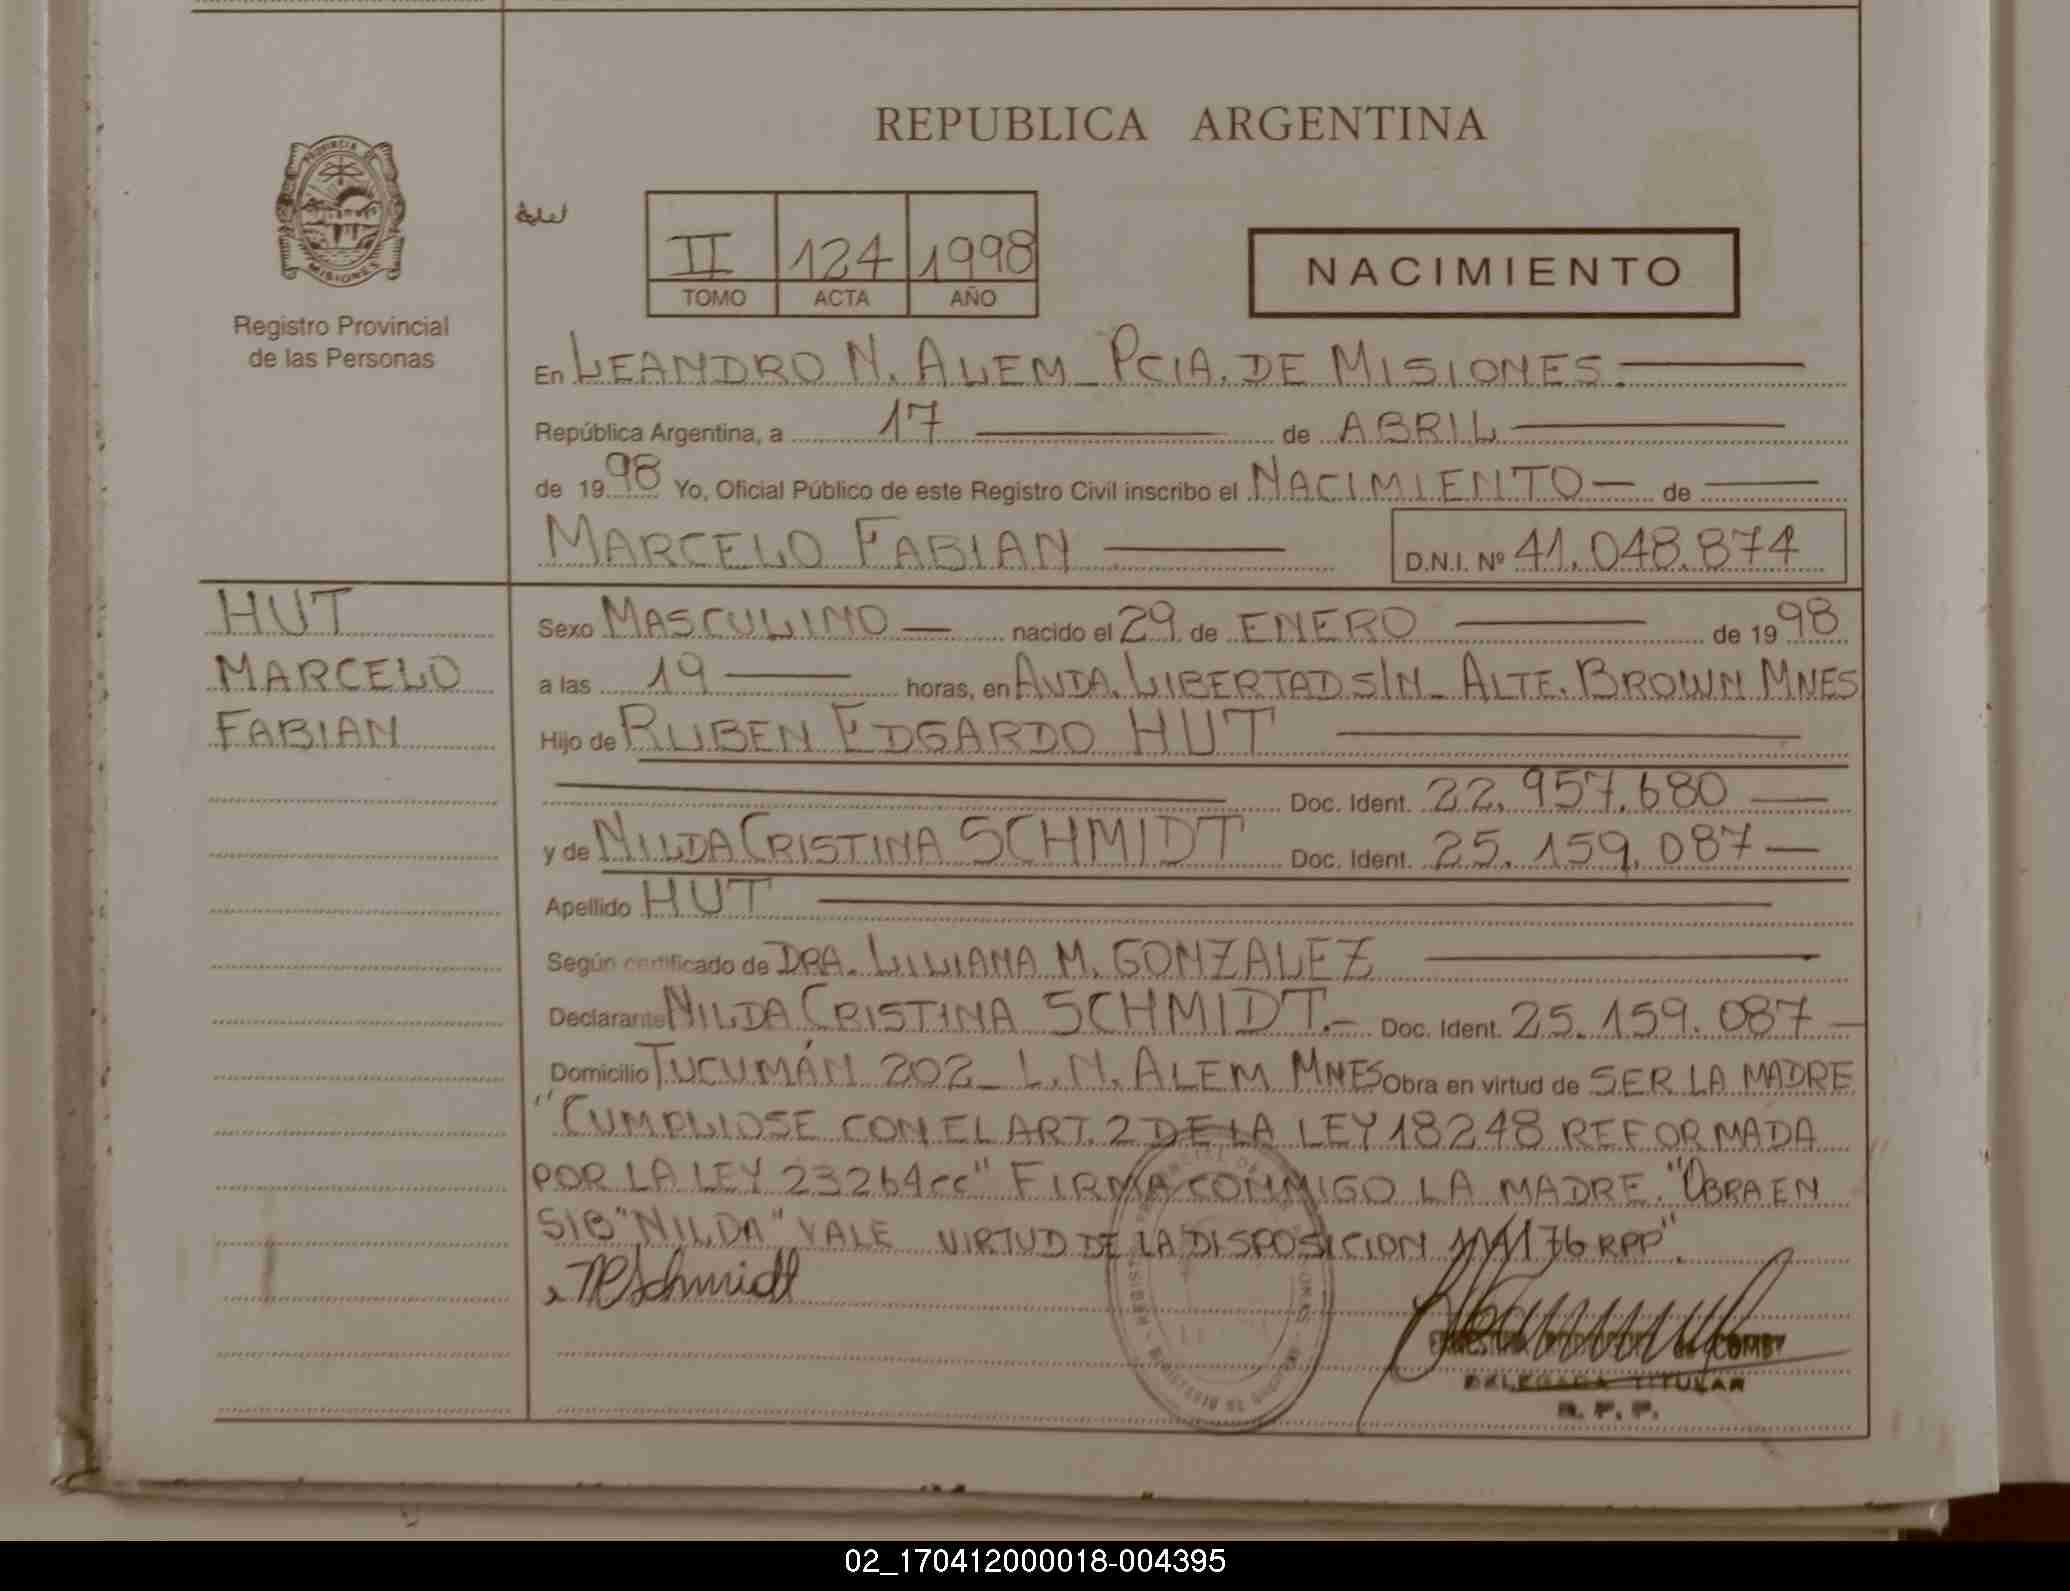 REPUBLICA ARGENTINA
PROVINCIA DE
MISIONES
Registro Provincial
de las Personas
II 124 1998
TOMO ACTA AÑO
NACIMIENTO
En LEANDRO N. ALEM_ PCIA. DE MISIONES.
República Argentina, a 17 de ABRIL
de 1998 Yo, Oficial Público de este Registro Civil inscribo el NACIMIENTO de
MARCELO FABIAN D.N.I. Nº 41.048.874
HUT
MARCELO
FABIAN
Sexo MASCULINO nacido el 29 de ENERO de 1998
a las 19 horas, en AVDA. LIBERTAD S/N_ ALTE. BROWN MNES
Hijo de RUBEN EDGARDO HUT
Doc. Ident. 22.957.680
y de NILDA CRISTINA SCHMIDT Doc. Ident. 25.159.087
Apellido HUT
Según certificado de DRA. LILIANA M. GONZALEZ
Declarante NILDA CRISTINA SCHMIDT. Doc. Ident. 25.159.087
Domicilio TUCUMÁN 202_ L.N. ALEM MNES Obra en virtud de SER LA MADRE
"CUMPLIOSE CON EL ART. 2 DE LA LEY 18248 REFORMADA
POR LA LEY 23264cc" FIRMA CONMIGO LA MADRE. "OBRA EN
S/B "NILDA" VALE VIRTUD DE LA DISPOSICION 176 RPP".
Schmidt
DELEGADA TITULAR
R. P. P.
02_170412000018-004395